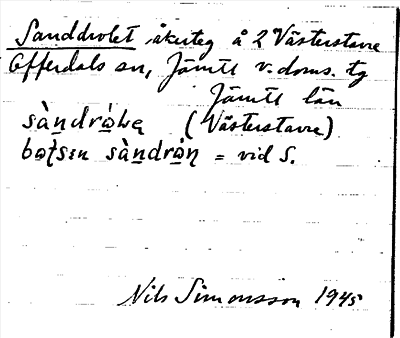 Sanddrolet åkerteg å 2 Västerstavre
Offerdals sn, Jämtl v. doms. tg
Jämtl län
(Västerstavre)
= vid S.
Nils Simonsson 1945